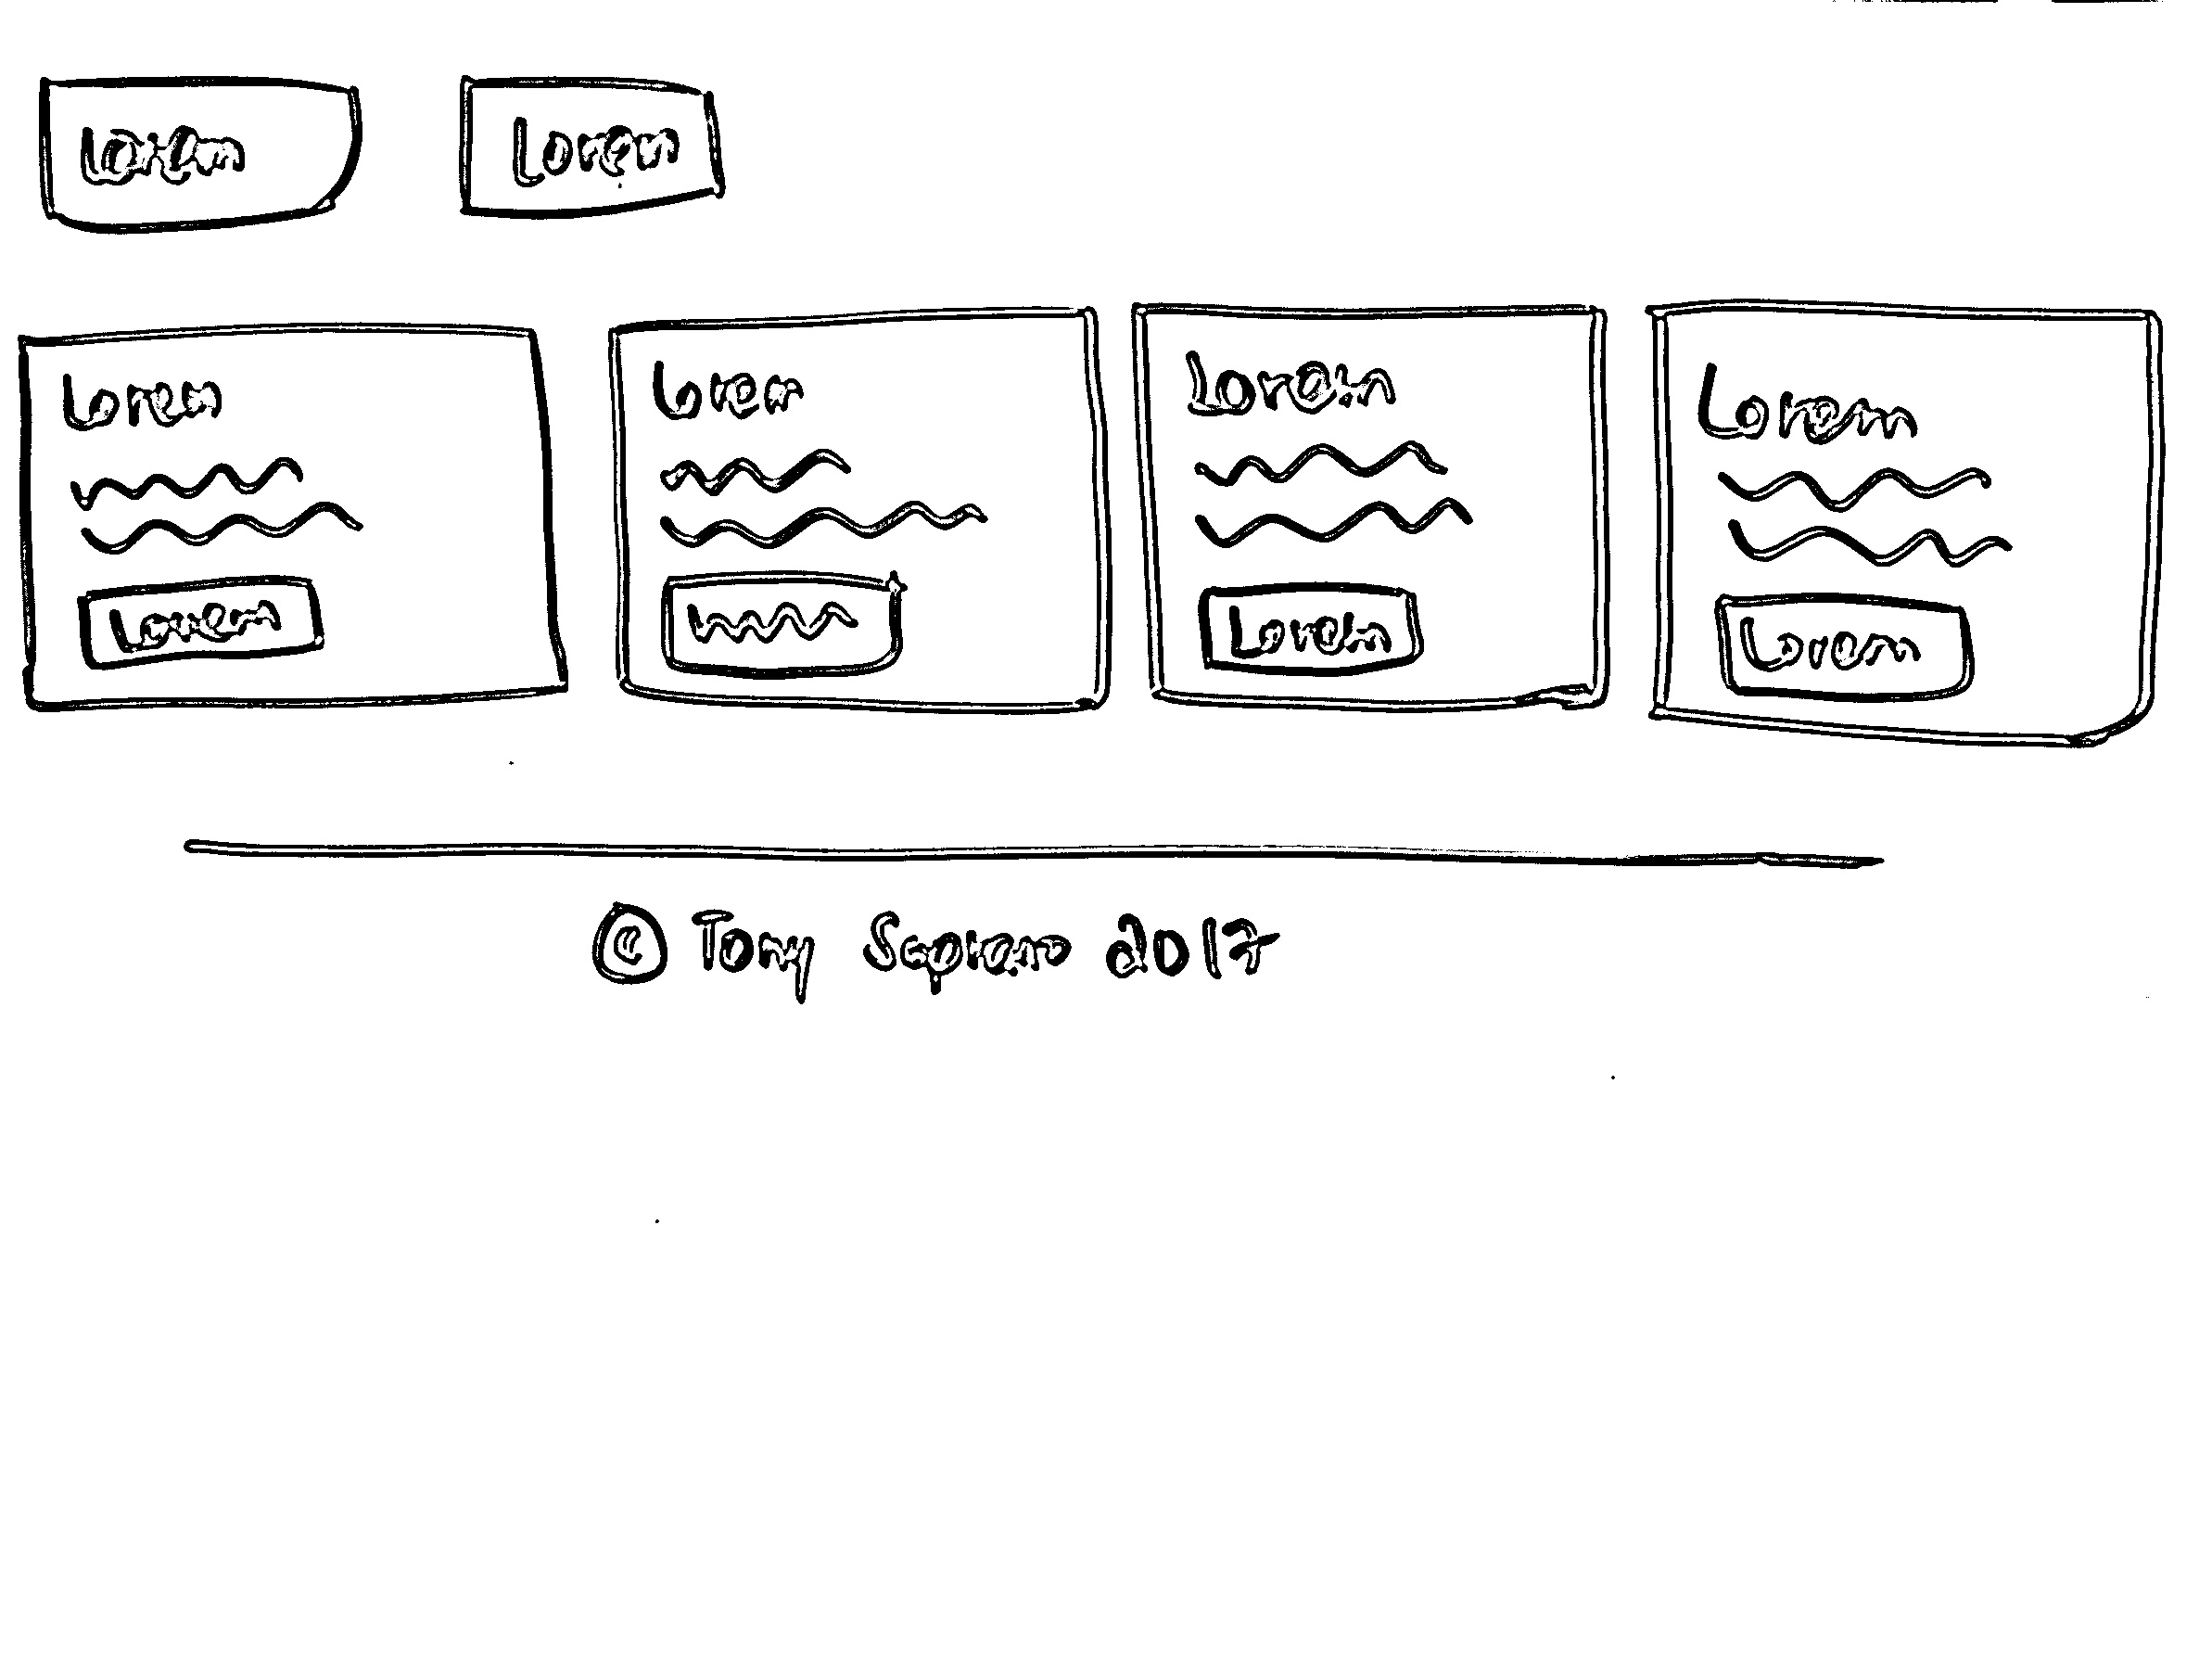 Lorem
Lorem
Lorem
Lorem
Lorem
Lorem
Lorem
Lorem
Lorem
© Tony Soprano 2017